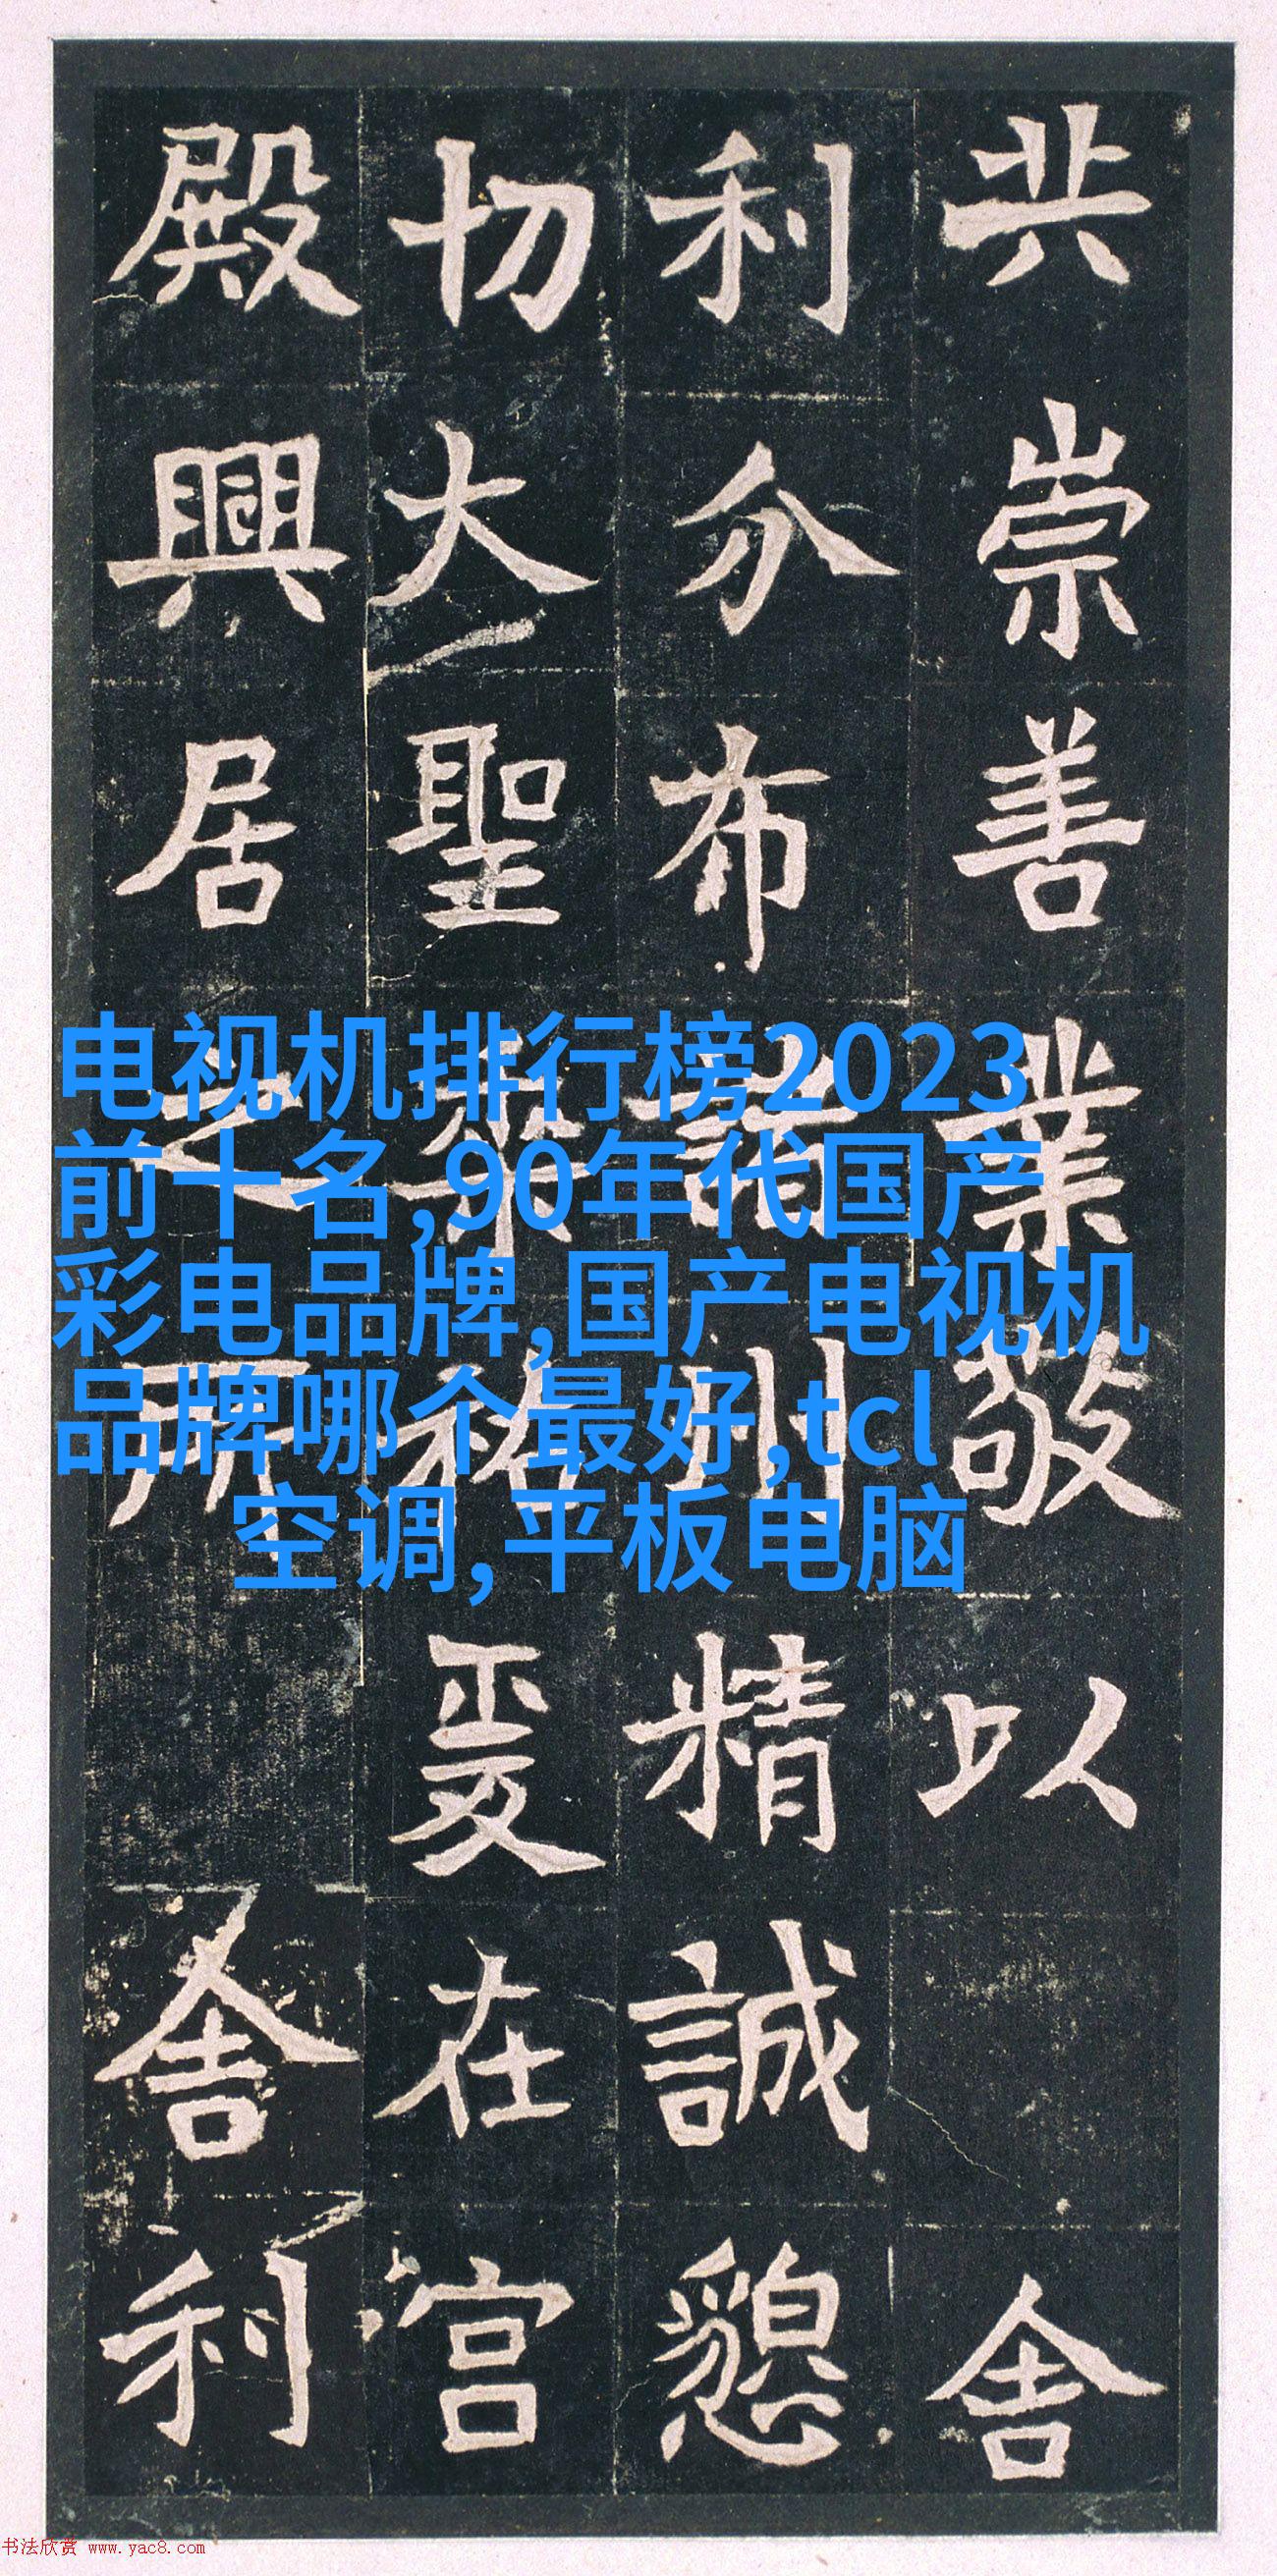 共崇善業敬以舍
利分布諸州精誠懇
切大聖垂祐爰在宫
殿興居之所舍利
电视机排行榜2023
前十名,90年代国产
彩电品牌,国产电视机
品牌哪个最好,tcl
空调,平板电脑
书法欣赏 www.yac8.com